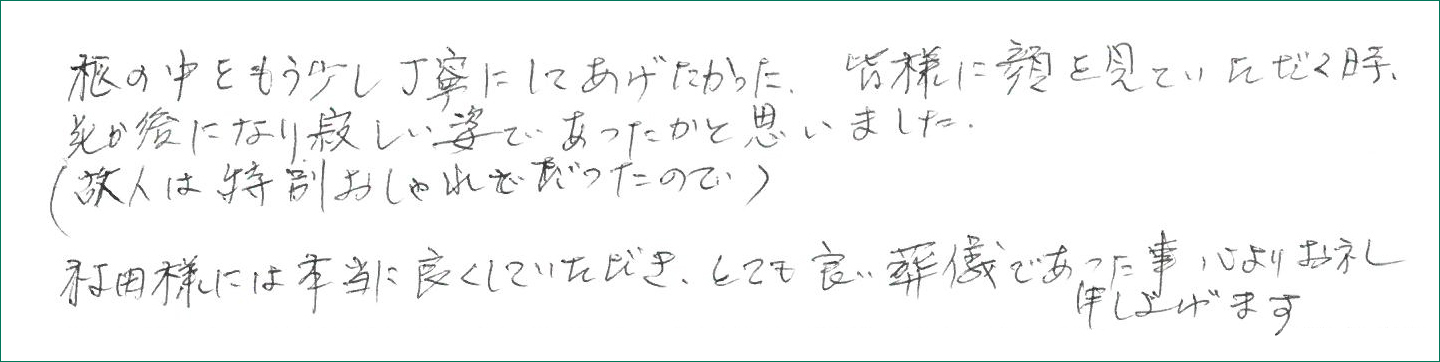 柩の中をもう少し丁寧にしてあげたかった、皆様に顔を見ていただく時、
花が後になり寂しい姿であったかと思いました。
(故人は特別おしゃれだったので)
村田様には本当に良くしていただき、とても良い葬儀であった事心よりお礼
申し上げます